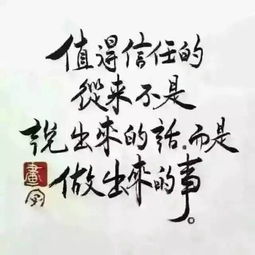 值得信任的
從来不是
說出來的話.而是
做出來的事。
畫字